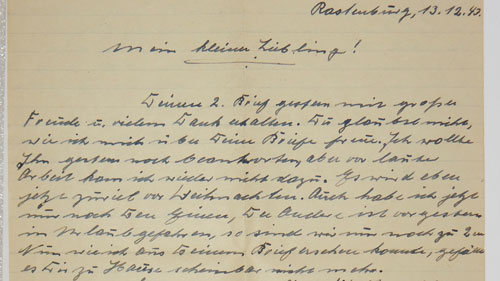 Rastenburg, 13.12.43.
Mein kleiner Liebling!
Deinen 2. Brief gestern mit großer
Freude u. vielem Dank erhalten. Du glaubst nicht,
wie ich mich über Deine Briefe freue. Ich wollte
Ihn gestern noch beantworten, aber vor lauter
Arbeit kam ich wieder nicht dazu. Es wird eben
jetzt zuviel vor Weihnachten. Auch habe ich jetzt
nur noch den einen, der Andere ist vorgestern
in Urlaub gefahren, so sind wir nur noch zu 2en
Nun wie ich aus Deinem Brief ersehen konnte, gefällt
es Dir zu Hause scheinbar nicht mehr.